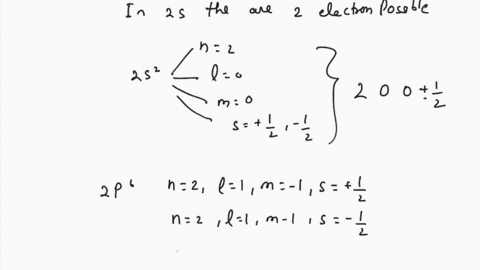 In 2s the are 2 electron Possible
n = 2
2s² l = 0
m = 0
s = +1/2, -1/2
2 0 0 ±1/2
2p⁶ n = 2, l = 1, m = -1, s = +1/2
n = 2, l = 1, m -1, s = -1/2